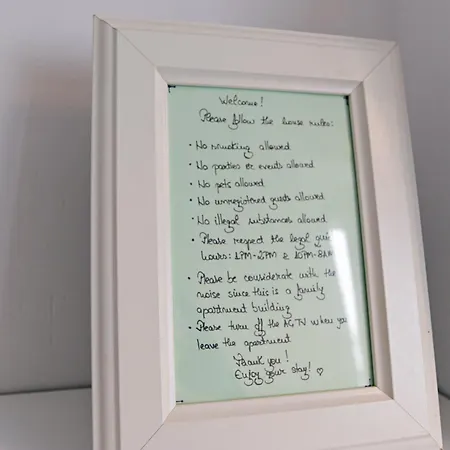 Welcome!
Please follow the house rules:
• No smoking allowed
• No parties or events allowed
• No pets allowed
• No unregistered guests allowed
• No illegal substances allowed
• Please respect the legal
hours: 1PM-2PM & 10PM-8AM
• Please be considerate with the
noise since this is a family
apartment building
• Please turn off the AC TV when you
leave the apartment
Thank you!
Enjoy your stay! ♡